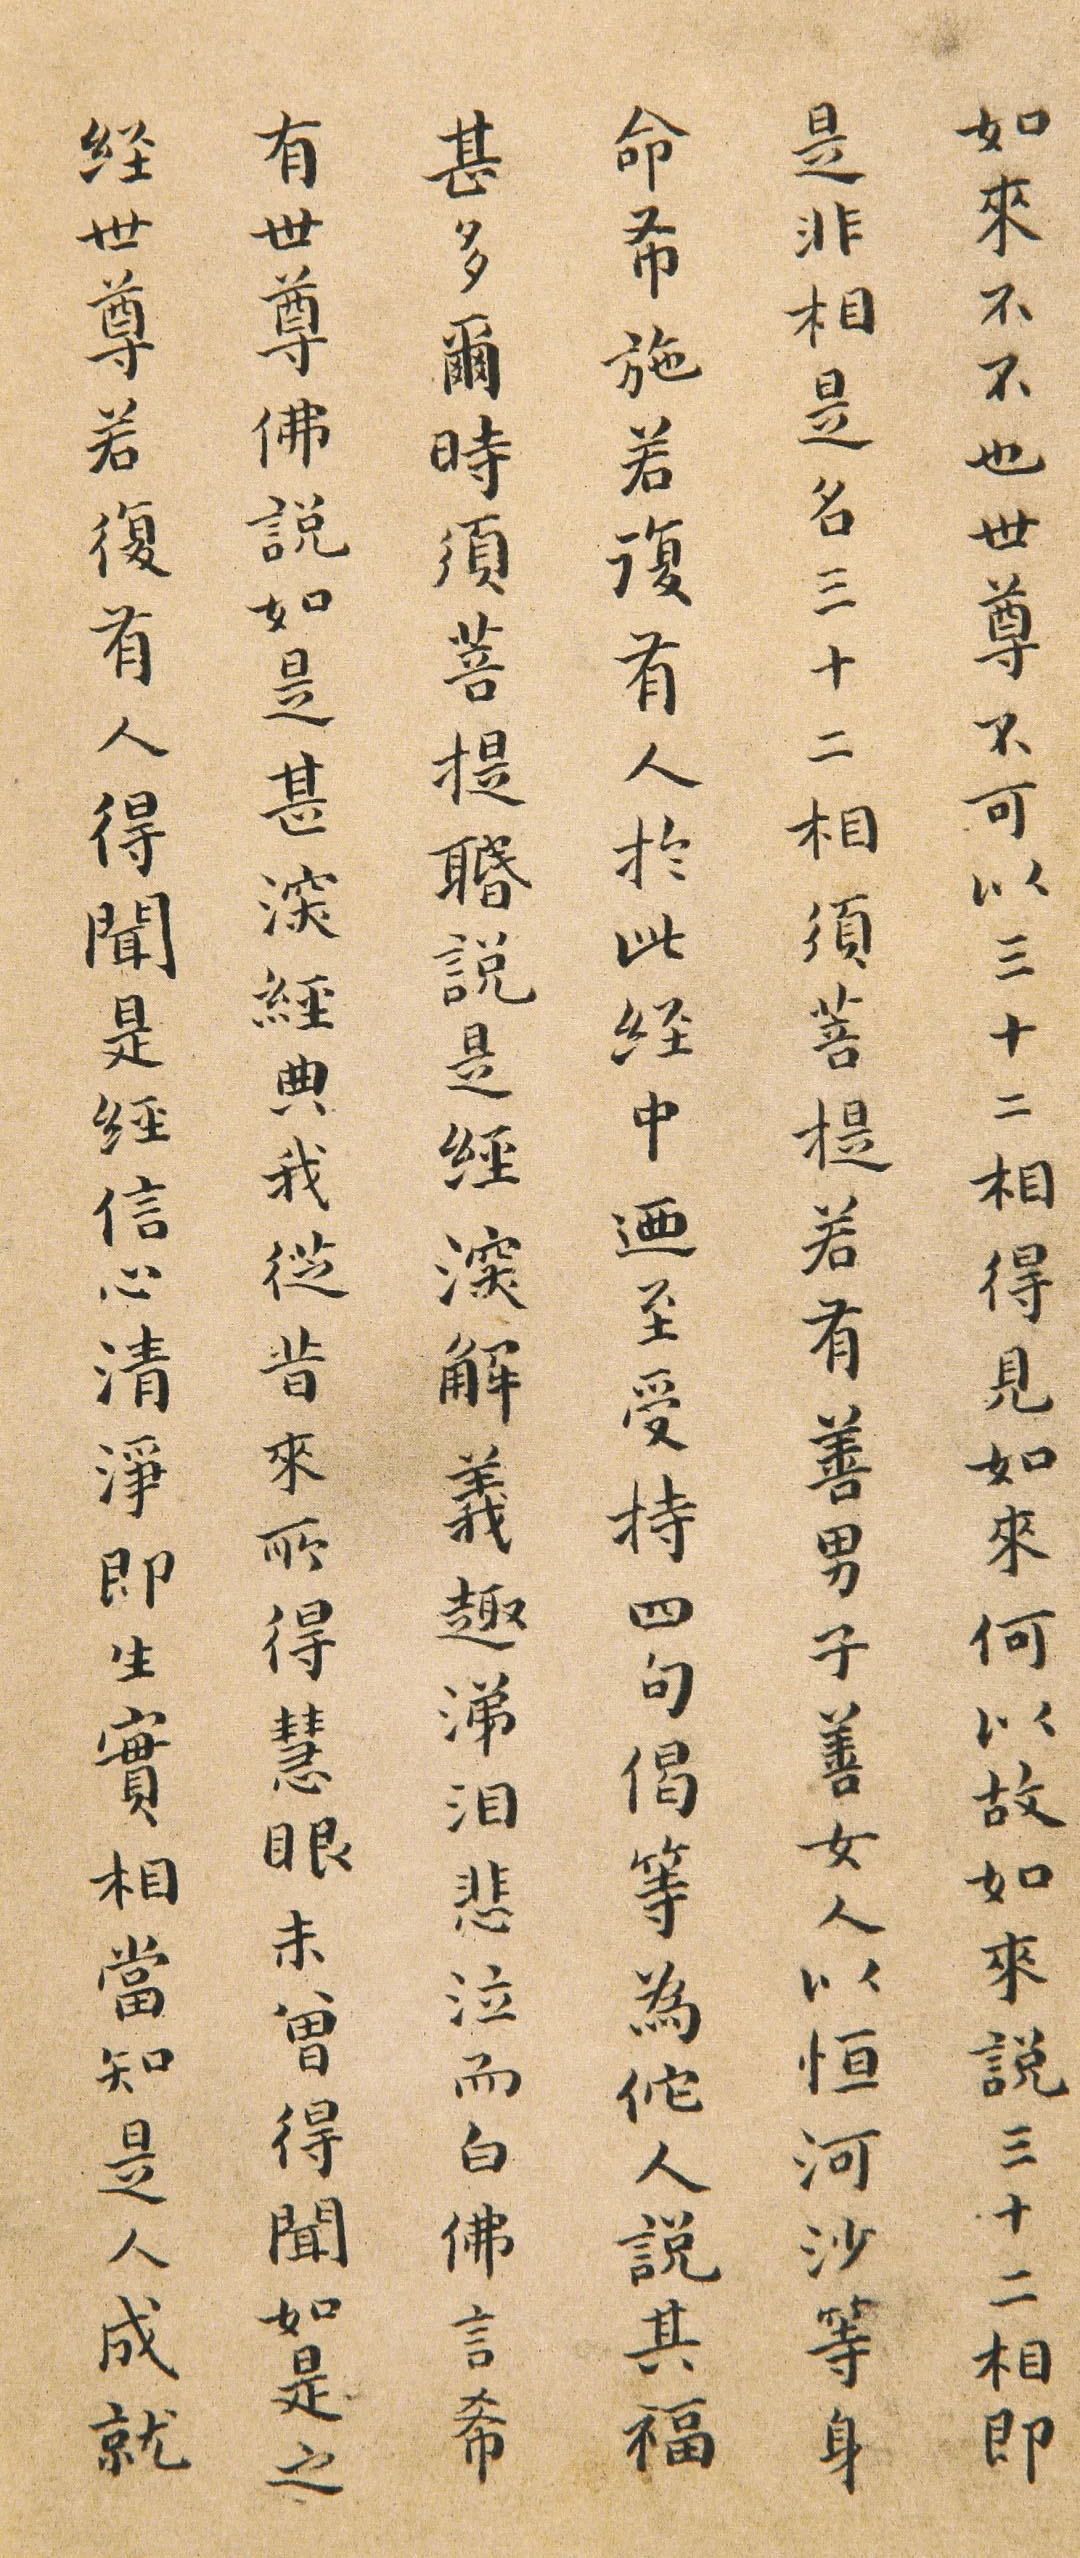 如來不不也世尊不可以三十二相得見如來何以故如來說三十二相即
是非相是名三十二相須菩提若有善男子善女人以恒河沙等身
命希施若復有人於此経中廼至受持四句偈等為佗人說其福
甚多爾時須菩提聞說是經深解義趣涕泪悲泣而白佛言希
有世尊佛說如是甚深經典我從昔來所得慧眼未曾得聞如是之
経世尊若復有人得聞是經信心清淨即生實相當知是人成就